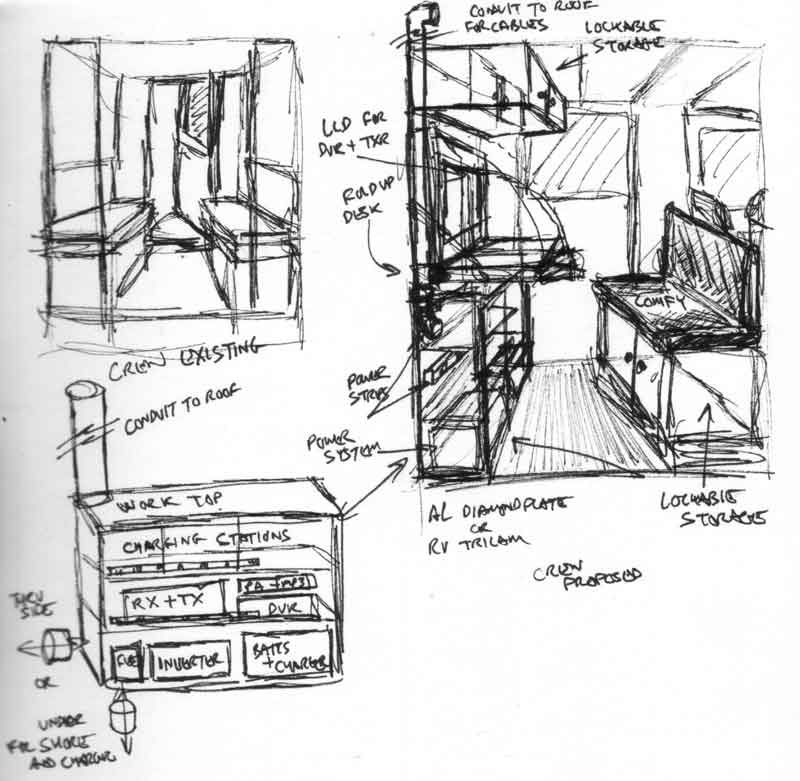 CONDUIT TO ROOF
FOR CABLES
LOCKABLE
STORAGE
LCD FOR
DVR + TXR
ROLDUP
DESK
COMFY
CREW EXISTING
POWER
STRIPS
POWER
SYSTEM
LOCKABLE
STORAGE
AL DIAMONDPLATE
OR
RV TRILAM
CREW
PROPOSED
CONDUIT TO ROOF
WORK TOP
CHARGING STATIONS
RX + TX
PA + MP3
DVR
FUSE
INVERTER
BATTS
+ CHARGER
THRU
SIDE
OR
UNDER
FOR SHORE
AND CHARGING